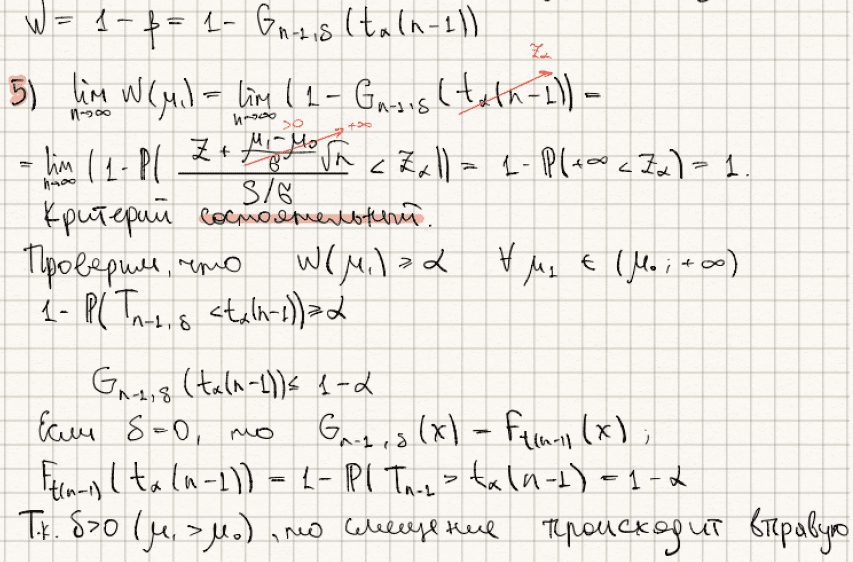 W = 1 - β = 1 - G_{n-1,δ}(t_α(n-1))
z_α
5) lim_{n→∞} W(μ₁) = lim_{n→∞} (1 - G_{n-1,δ}(t_α(n-1)) =
>0 +∞
= lim_{n→∞} (1 - ℙ( (Z + (μ₁-μ₀)/σ √n) / (S/σ) < Z_α)) = 1 - ℙ(+∞ < Z_α) = 1.
Критерий состоятельный.
Проверим, что W(μ₁) ≥ α ∀ μ₁ ∈ (μ₀; +∞)
1 - ℙ(T_{n-1,δ} < t_α(n-1)) ≥ α
G_{n-1,δ}(t_α(n-1)) ≤ 1-α
Если δ=0, то G_{n-1,δ}(x) = F_{t(n-1)}(x);
F_{t(n-1)}(t_α(n-1)) = 1 - ℙ(T_{n-1} > t_α(n-1) = 1-α
Т.к. δ>0 (μ₁>μ₀), то смещение происходит вправую